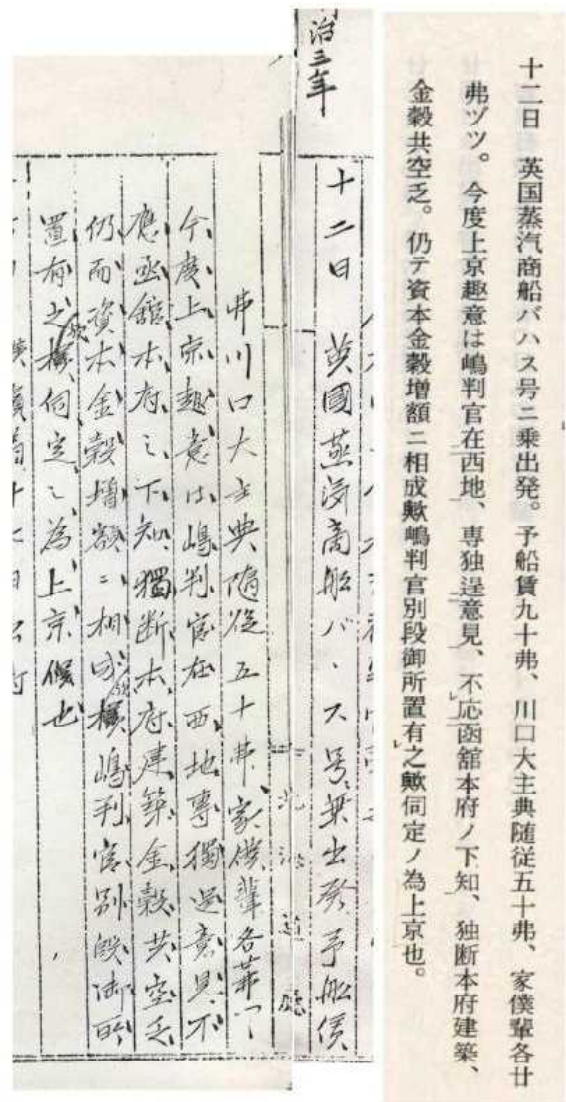 十二日　英国蒸汽商船バハス号ニ乗出発。予船賃九十弗、川口大主典随従五十弗、家僕輩各廿
弗ヅツ。今度上京趣意は嶋判官在西地、専独逞意見、不応函舘本府ノ下知、独断本府建築、
金穀共空乏。仍テ資本金穀増額ニ相成歟嶋判官別段御所置有之歟伺定ノ為上京也。
治三年
十二日　英國蒸汽商船バハス号乗出発予船賃
弗川口大主典隨從五十弗家僕輩各
今度上京趣意は嶋判官在西地専獨逞意見不
應函舘本府之下知獨断本府建築金穀共空乏
仍而資本金穀増額ニ相成様嶋判官別段御所
置有之様伺定之為上京候也
道廳